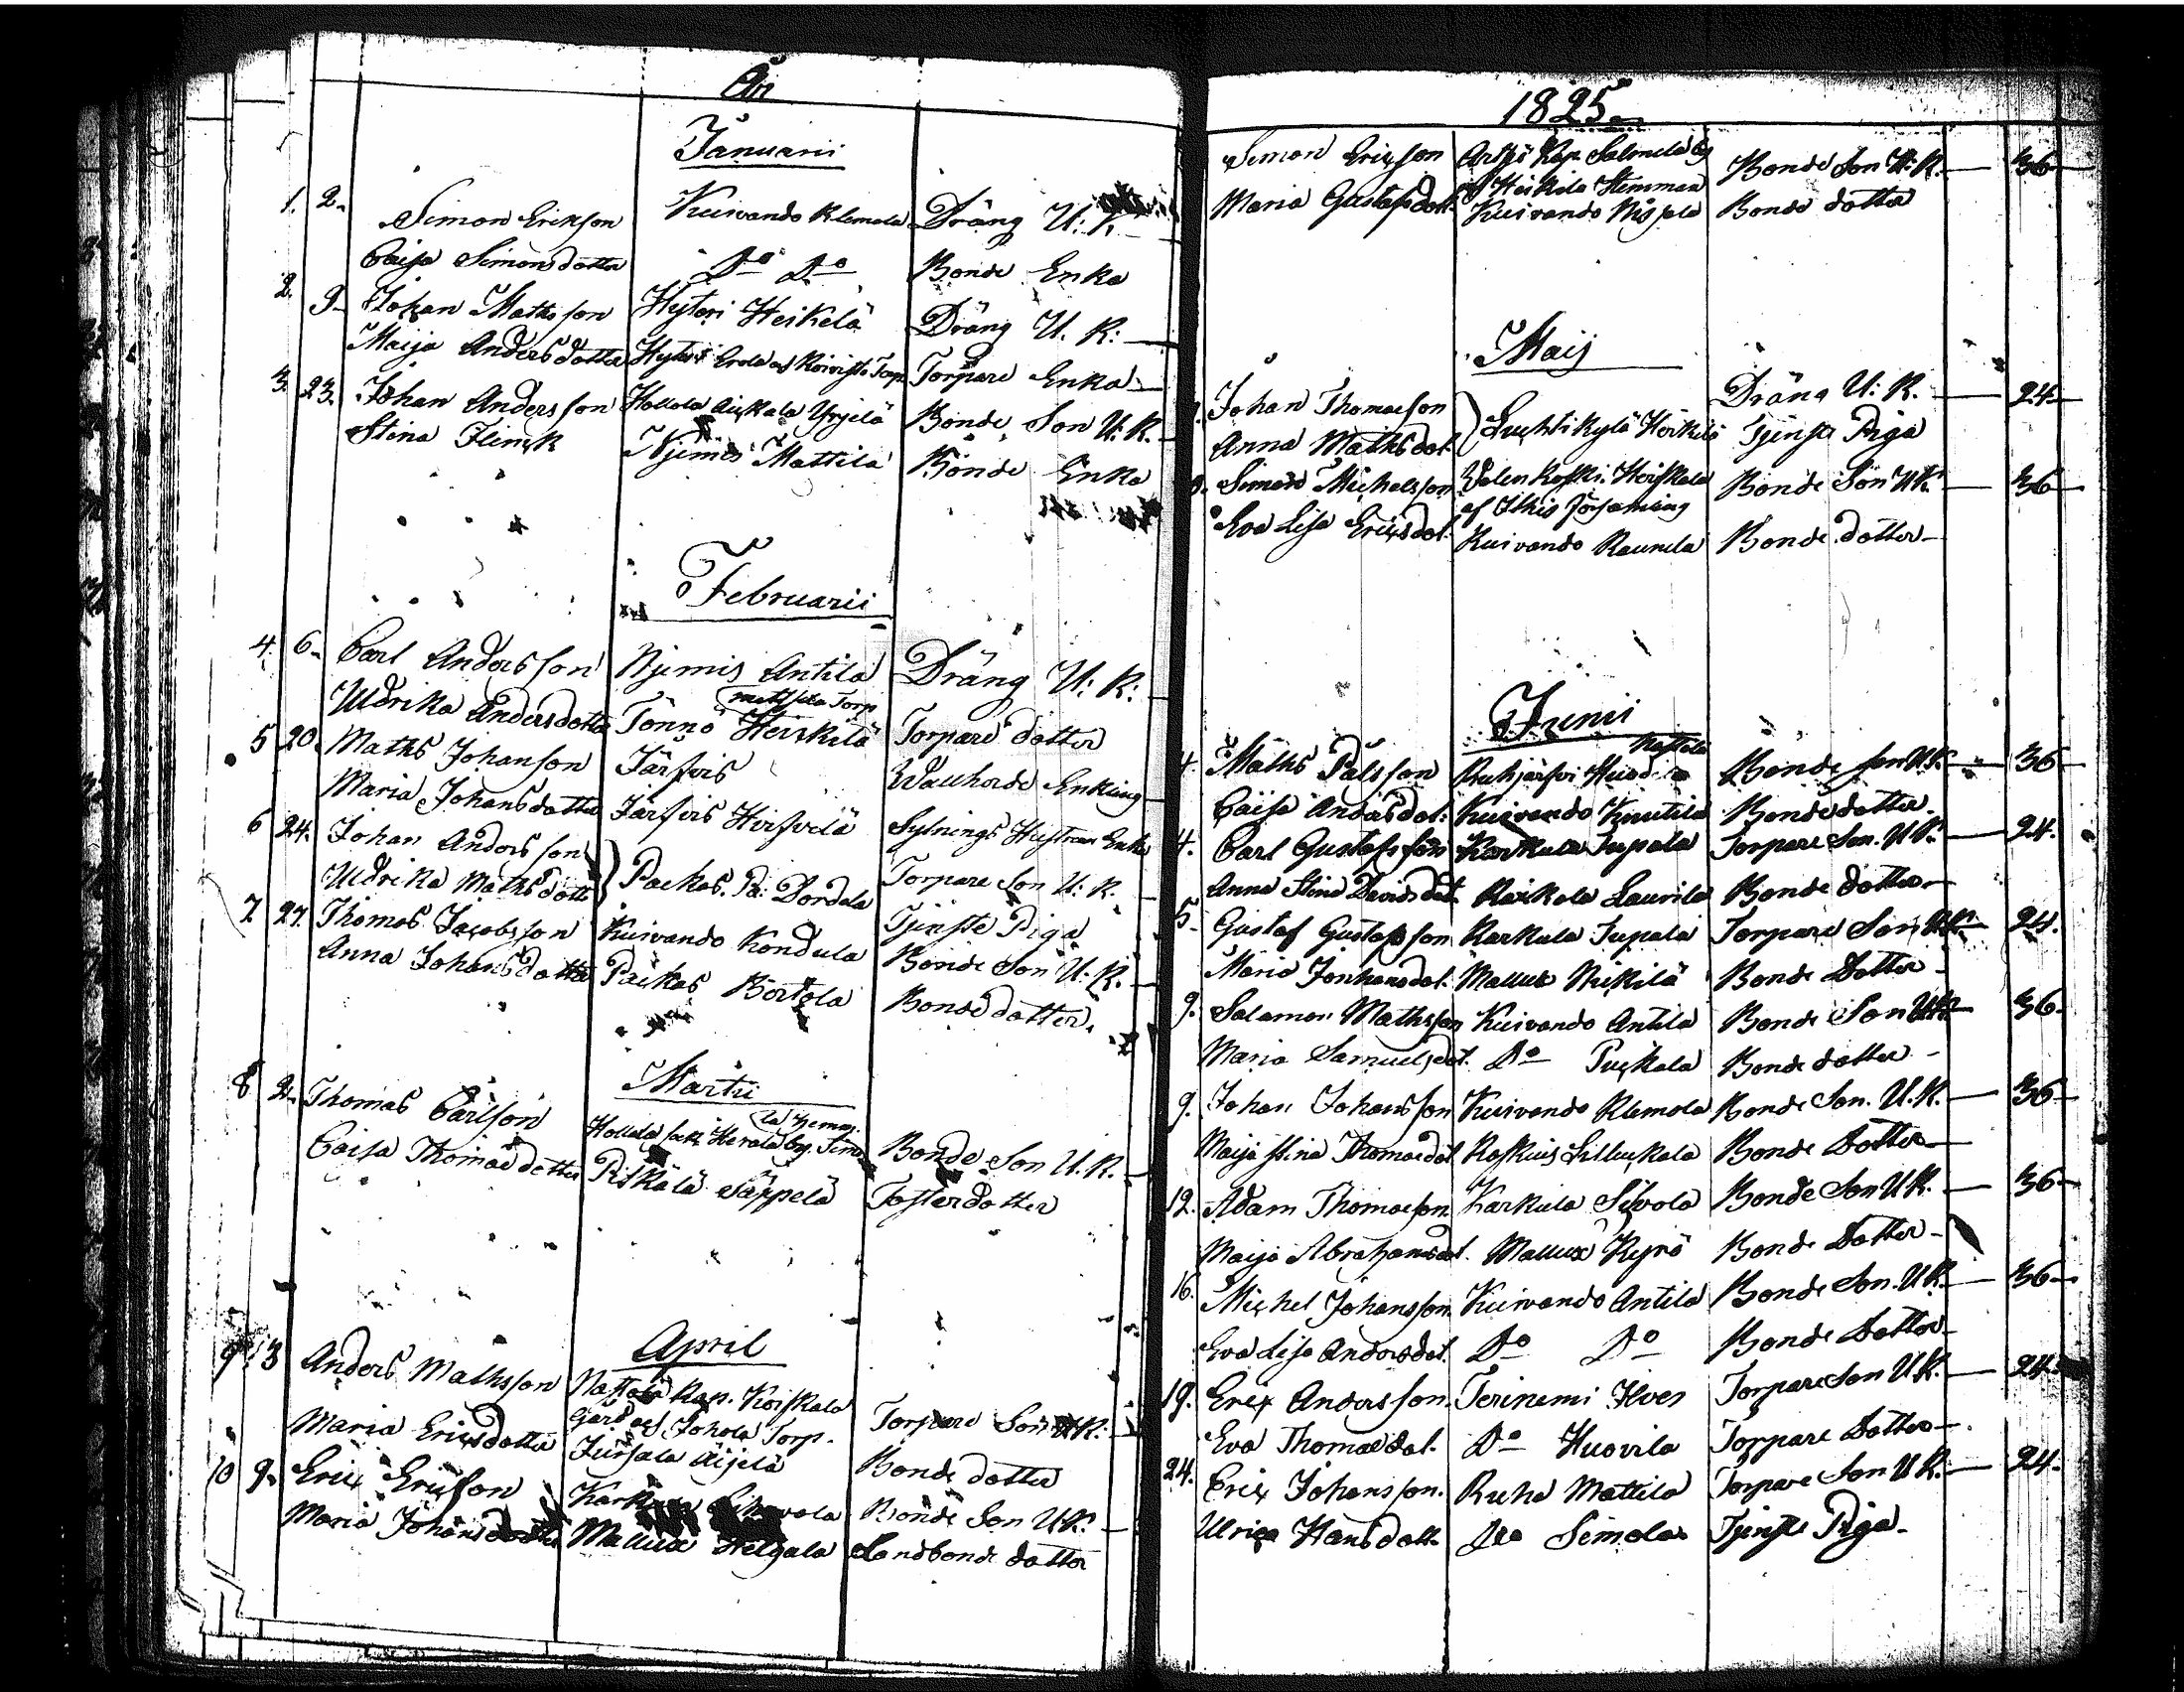 År
Januarii
1. 2. Simon Erikson Kuivando Klemola Dräng U: K.
Caisa Simonsdotter Do Do Bonde Enka
2. 9. Johan Mathsson Hyteri Heikelä Dräng U. K:
Maija Andersdotter Hyteri Erola Torpare Enka
3. 23. Johan Andersson Hollola Yrjelä Bonde Son U. K.
Stina Flinck Njemis Mattila Bonde Enka
Februarii
4. 6. Carl Andersson Njemis Antila Dräng U: K:
Torp
Uldrika Andersdotter Tönnö Heikilä Torpare dotter
5 20. Maths Johanson Järfvis Enkling
Maria Johansdotter Järfvis Enka
6 24. Johan Andersson Torpare Son U. K.
Uldrika Mathsdott Paekas Tjenste Piga
7 27. Thomas Jacobsson Kuivando Kondula Bonde Son U. K.
Anna Johansdotter Paekas Bertola Bonde dotter.
Martii
8 2. Thomas Carlson Hollola Bonde Son U. K.
Caisa Thomaedotter Säppelä Fosterdotter
April
9 3 Anders Mathsson Nastola Kap. Koiskala
Torp. Torpare Son U.K:
Maria Ericsdotter Äijelä Bonde dotter
10 9. Eric Ericson Bonde Son U.K.
Maria Johansdotter Mallux Landbonde dotter
1825
Simon Ericson Artsjö Kap. Bonde Son U: K. 36
Heikila Hemman
Maria Gustafsdott. Kuivando Bonde dotter
Maij
Johan Thomaeson Dräng U: K. 24
Anna Mathsdot. Tjenste Piga
Simon Michelsson Bonde Son U.K. 36
af Ithis Församling
Eva Lisa Ericsdot. Kuivando Raunela Bonde dotter
Junii
4. Maths Pålsson Bonde son U.K. 36
Caisa Andersdot. Kuivando Knutila Bonde dotter
4. Carl Gustafsson Karkula Jupala Torpare Son. U.K. 24.
Anna Stina Davidsdot. Laurila Bonde dotter
5. Gustaf Gustafsson Karkula Jupala Torpare Son U.K. 24.
Maria Jonhansdot. Mallux Bonde Dotter
9. Salamon Mathsson Kuivando Antila Bonde Son U.K. 36.
Maria Samuelsdot. Do Bonde dotter
9. Johan Johansson Kuivando Klemola Bonde Son. U.K. 36
Maija Stina Thomaedot Koskuis Bonde Dotter
12. Adam Thomaeson Karkula Bonde Son U.K. 36
Maija Abrahamsdot. Mallux Kyrö Bonde Dotter
16. Michel Johansson Kuivando Antila Bonde Son. U.K. 36
Eva Lisa Andersdot. Do Do Bonde Dotter
19. Eric Andersson. Terinemi Torpare Son U.K. 24
Eva Thomaedot. Do Huovila Torpare Dotter
24. Eric Johansson. Ruha Mattila Torpare Son U.K. 24.
Ulrica Hansdott. Simola Tjenste Piga